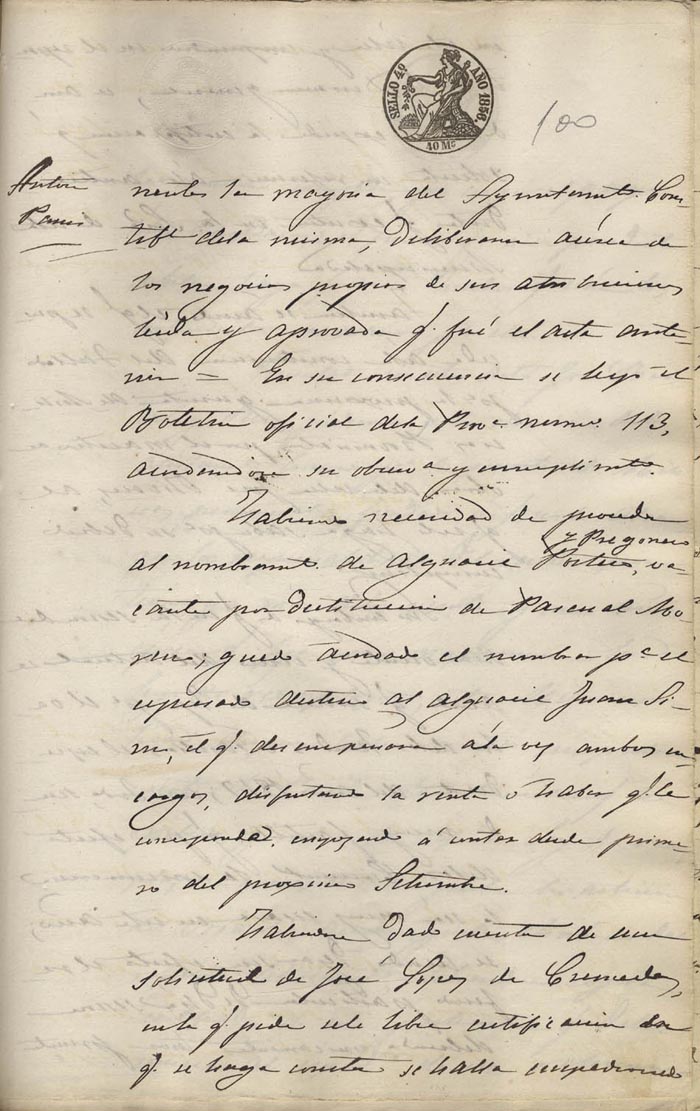 SELLO 4º AÑO 1856.
40 Ms
100
Anton
Panis
nentes la mayoria del Ayuntamt. Cons-
tl dela misma, deliberaron acerca de
los negocios propios de sus atribuciones
leida y aprovada q. fué el acta ante-
rior = En su consecuencia se leyó el
Boletin oficial dela Prova numo. 113,
acordandose su obserca y cumplimto.
Habiendo necesidad de proceder
y Pregonero
al nombramt. de alguacil Portero, va-
cante por destitucion de Pascual Mo-
reno; quedó acordado el nombrar pa el
espresado destino al alguacil Juan Si-
mo, el q. desempeñara ála vez ambos en-
cargos, disfrutando la renta ó haber q. le
corresponda, empezando á contar desde prime-
ro del proximo Setiembre.
Habiendose dado cuenta de una
solicitud de José Lopez de Cremades,
enla q. pide sele libre certificacion en
q. se haga constar se halla empadronado